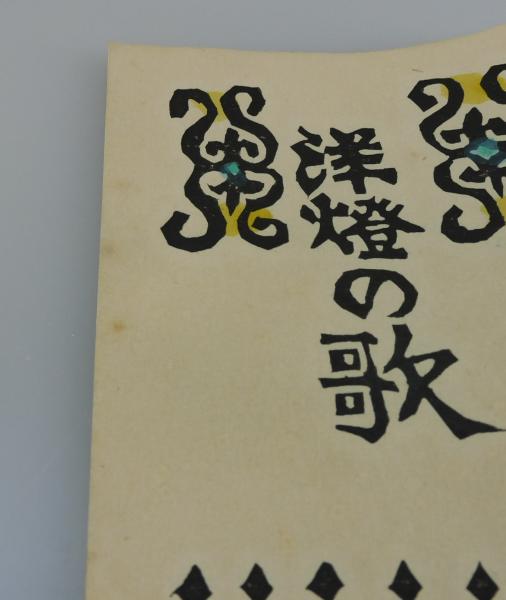 洋燈の歌